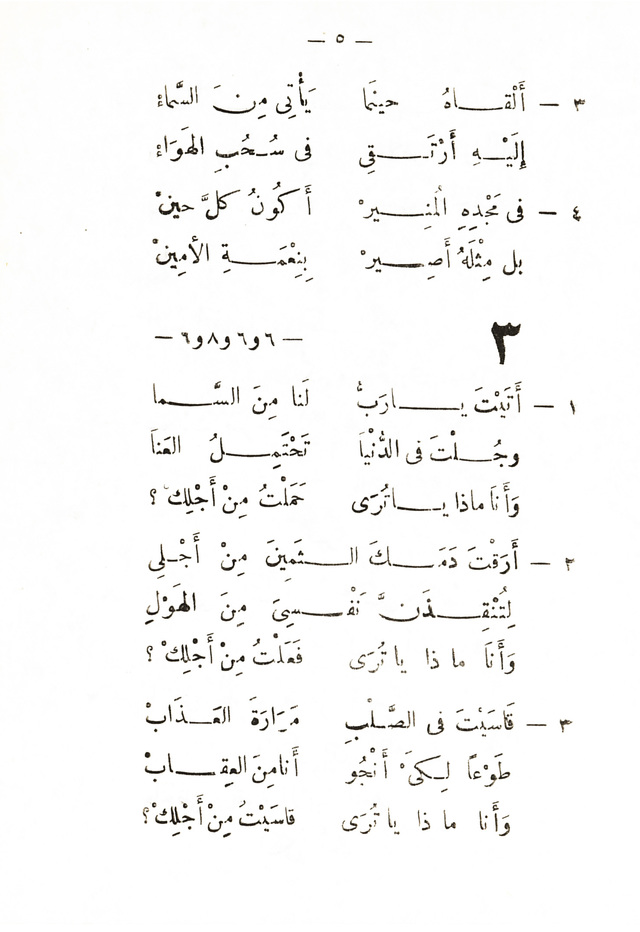 — ٥ —
٣ — أَلْقاهُ حينَما يَأْتِى مِنَ السَّماءْ
إِلَيْهِ أَرْتَقِى فى سُحُبِ الهَوَاءْ
٤ — فى مَجْدِهِ المُنِيرْ أَكُونُ كلَّ حينْ
بل مِثْلَهُ أَصِيرْ بِنِعْمَةِ الأمِينْ
٣ — ٦و٦و٨و٦ —
١ — أَتَيْتَ يارَبُّ لَنا مِنَ السَّما
وجُلْتَ فى الدُّنْيَا تَحْتَمِلُ العَنَا
وَأَنَا ماذا ياتُرَى حَمَلْتُ مِنْ أَجْلِكْ ؟
٢ — أَرَقْتَ دَمَكَ الثَّمِينَ مِنْ أَجْلِى
لِتُنْقِذَنَّ نَفْسِىَ مِنَ الهَوْلِ
وَأَنَا ما ذا ياتُرَى فَعَلْتُ مِنْ أَجْلِكْ ؟
٣ — قَاسَيْتَ فى الصَّلْبِ مَرَارَةَ العَذَابْ
طَوْعًا لِكَىْ أَنْجُو أَنا مِنَ العِقابْ
وَأَنا ما ذا ياتُرَى قاسَيْتُ مِنْ أَجْلِكْ؟